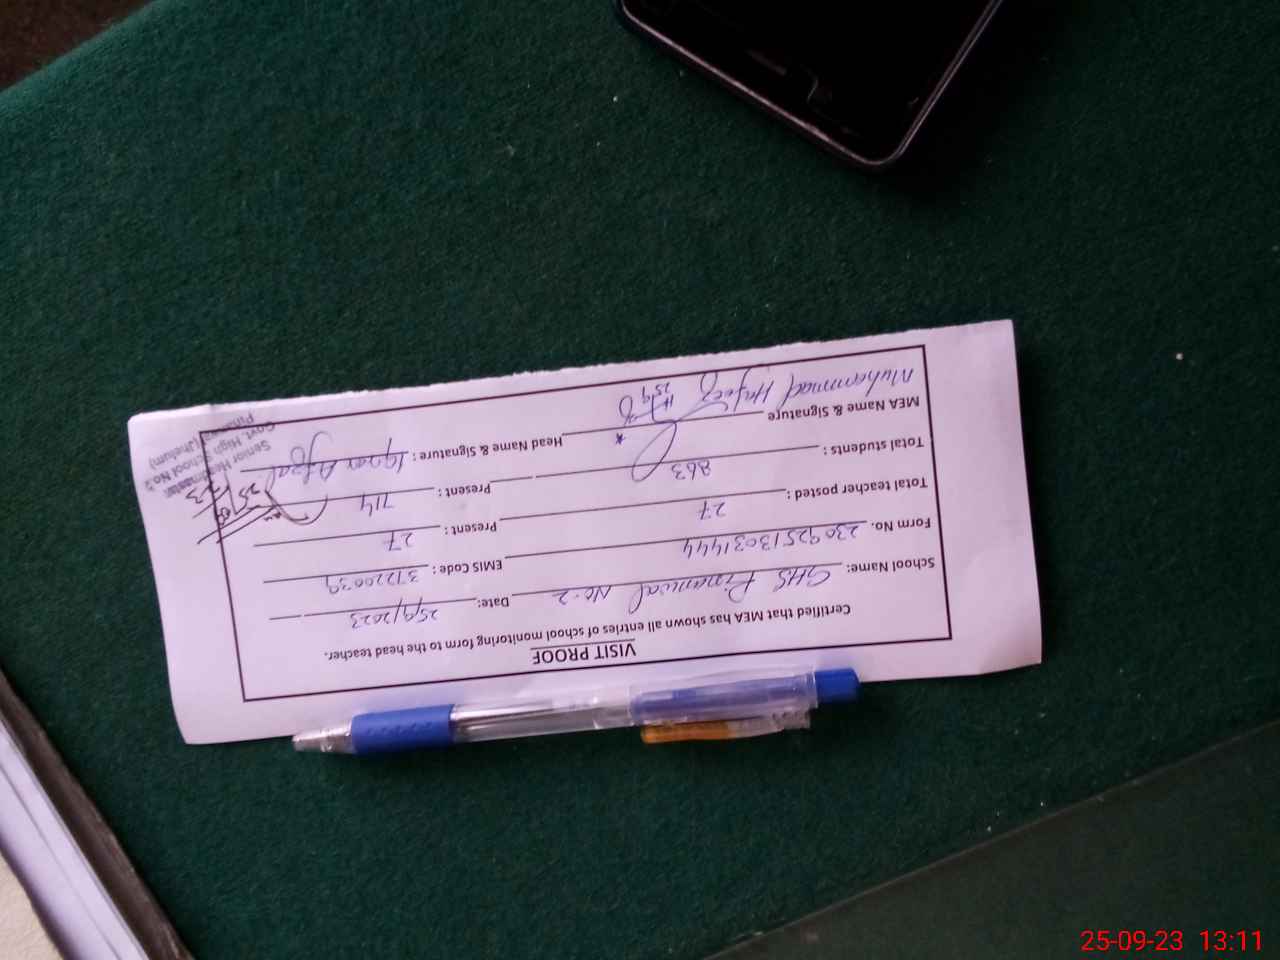 VISIT PROOF
Certified that MEA has shown all entries of school monitoring form to the head teacher.
School Name: GHS Pinanwal No-2 Date: 25/9/2023
Form No. 23092513031444 EMIS Code: 37220039
Total teacher posted: 27 Present: 27
Total students: 863 Present: 714
MEA Name & Signature Muhammad Hafeez Head Name & Signature: Iqrar Afzal
Senior Headmaster
Govt. High School No.2
Pinanwal (Jhelum)
25-09-23 13:11